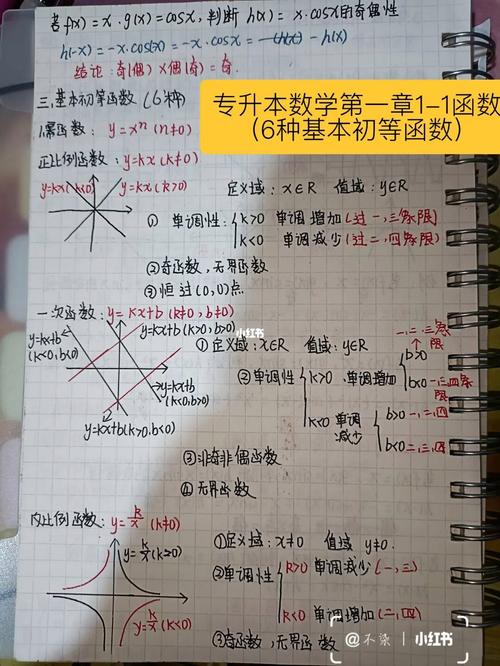 若f(x)=x·g(x)=cosx,判断h(x)=x·cosx的奇偶性
h(-x)=-x·cos(x)=-x·cosx=-h(x)
结论:奇(偶)×偶(奇)=奇.
专升本数学第一章1-1函数
(6种基本初等函数)
三.基本初等函数(6种)
1.幂函数: y=xⁿ(n≠0)
正比例函数: y=kx(k≠0)
y=kx(k<0) y=kx(k>0)
定义域: x∈R 值域: y∈R
① 单调性: k>0 单调增加(过一,三象限)
k<0 单调减少(过二,四象限)
②奇函数,无界函数
③恒过(0,0)点
一次函数: y=kx+b(k≠0,b≠0)
小红书
y=kx+b(k>0,b>0)
y=kx+b
(k<0,b<0)
y=kx+b
(k<0,b>0)
y=kx+b(k>0,b<0)
①定义域:x∈R 值域: y∈R
②单调性 k>0 单调增加 b>0 一,二,三象限
b<0 一,三,四象限
k<0 单调减少 b>0 一,二,四
b<0 二,三,四
③非奇非偶函数
④无界函数
反比例函数: y=k/x(k≠0)
y=k/x(k>0)
y=k/x(k<0)
①定义域: x≠0 值域 y≠0.
②单调性 k>0 单调减少(一,三)
k<0 单调增加(二,四)
③奇函数,无界函数
@不染 小红书